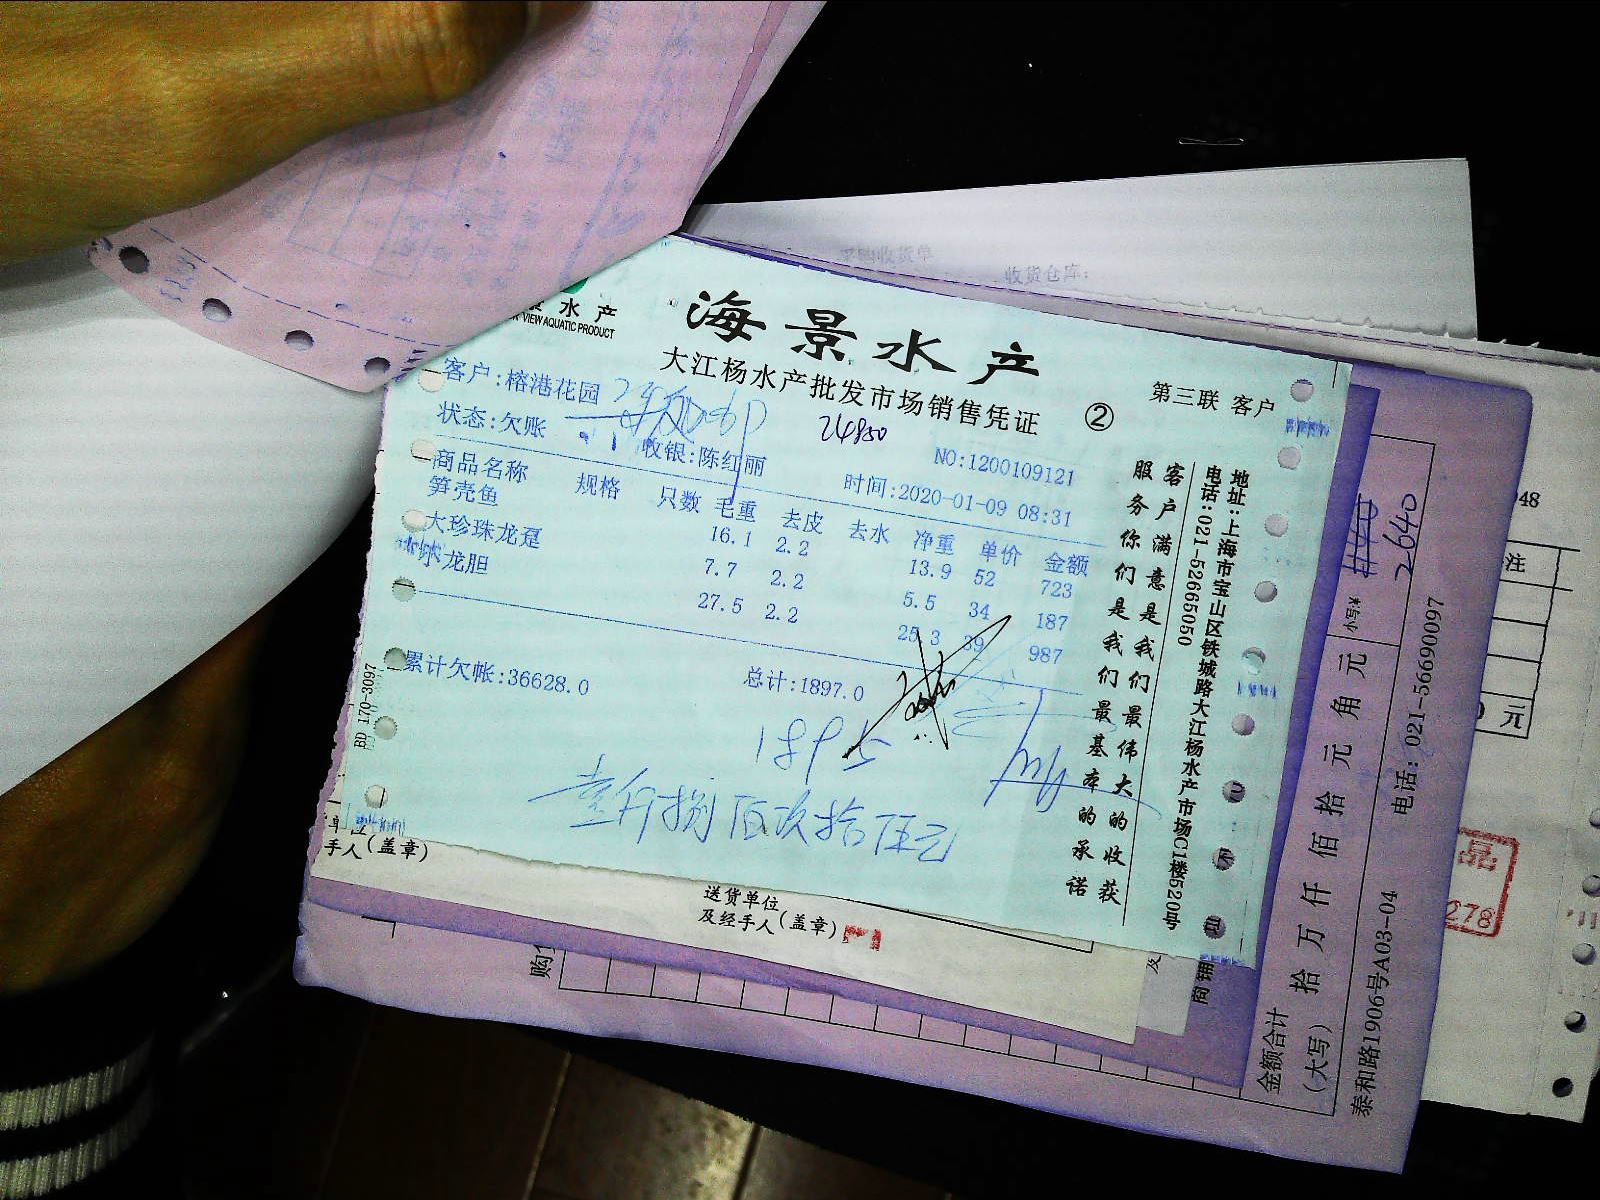 采购收货单
收货仓库:
水产
VIEW AQUATIC PRODUCT
海景水产
大江杨水产批发市场销售凭证 ②
第三联 客户
客户:榕港花园
24850
状态:欠账
收银:陈红丽
NO:1200109121
时间:2020-01-09 08:31
商品名称 规格 只数 毛重 去皮 去水 净重 单价 金额
笋壳鱼 16.1 2.2 13.9 52 723
大珍珠龙趸 7.7 2.2 5.5 34 187
龙胆 27.5 2.2 25.3 39 987
累计欠帐:36628.0
总计:1897.0
1895
壹仟捌佰玖拾伍元
BD 170-3097
客户满意是我们最伟大的收获
服务你们是我们最基本的承诺
地址:上海市宝山区铁城路大江杨水产市场C1楼520号
电话:021-52665050
手人(盖章)
送货单位
及经手人(盖章)
购
及
2640
小写¥
金额合计
(大写) 拾 万 仟 佰 拾 元 角 元
泰和路1906号A03-04 电话: 021-56690097
48
注
元
品
278